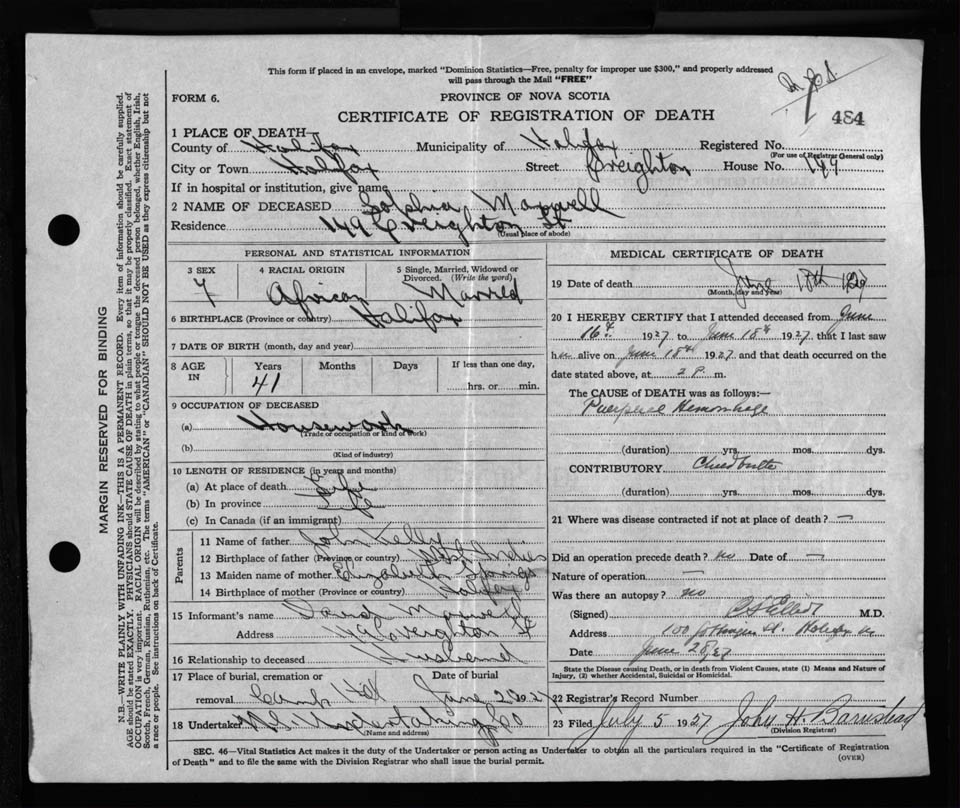 This form if placed in an envelope, marked "Dominion Statistics—Free, penalty for improper use $300," and properly addressed
will pass through the Mail "FREE"
FORM 6.
PROVINCE OF NOVA SCOTIA
CERTIFICATE OF REGISTRATION OF DEATH
484
1 PLACE OF DEATH—
County of Halifax Municipality of Halifax Registered No.
(For use of Registrar General only)
City or Town Halifax Street Creighton House No. 149
If in hospital or institution, give name
2 NAME OF DECEASED Sophia Maxwell
Residence 149 Creighton St
(Usual place of abode)
PERSONAL AND STATISTICAL INFORMATION
3 SEX 4 RACIAL ORIGIN 5 Single, Married, Widowed or Divorced. (Write the word)
F African Married
6 BIRTHPLACE (Province or country) Halifax
7 DATE OF BIRTH (month, day and year)
8 AGE IN Years Months Days If less than one day,
41 hrs. or min.
9 OCCUPATION OF DECEASED
(a) Housework
(Trade or occupation or kind of work)
(b)
(Kind of industry)
10 LENGTH OF RESIDENCE (in years and months)
(a) At place of death Life
(b) In province Life
(c) In Canada (if an immigrant)
Parents
11 Name of father John Kelly
12 Birthplace of father (Province or country) West Indies
13 Maiden name of mother Elizabeth
14 Birthplace of mother (Province or country) Halifax
15 Informant's name Maxwell
Address 149 Creighton St
16 Relationship to deceased Husband
17 Place of burial, cremation or
removal Camp Hill June 20 1927
18 Undertaker N.S. Undertaking Co
(Name and address)
MEDICAL CERTIFICATE OF DEATH
19 Date of death June 18th 1927
(Month, day and year)
20 I HEREBY CERTIFY that I attended deceased from June
16th 1927 to June 18th 1927 that I last saw
her alive on June 18th 1927 and that death occurred on the
date stated above, at 2 P. m.
The CAUSE OF DEATH was as follows:
Puerperal Hemorrhage
(duration) yrs. mos. dys.
CONTRIBUTORY Childbirth
(duration) yrs. mos. dys.
21 Where was disease contracted if not at place of death? —
Did an operation precede death? no Date of —
Nature of operation —
Was there an autopsy? no
(Signed) M.D.
Address 100 Gottingen St. Halifax
Date June 20/27
State the Disease causing Death, or in death from Violent Causes, state (1) Means and Nature of
Injury, (2) whether Accidental, Suicidal or Homicidal.
22 Registrar's Record Number
23 Filed July 5 1927 John H. Barnstead
(Division Registrar)
SEC. 46—Vital Statistics Act makes it the duty of the Undertaker or person acting as Undertaker to obtain all the particulars required in the "Certificate of Registration
of Death" and to file the same with the Division Registrar who shall issue the burial permit.
(OVER)
MARGIN RESERVED FOR BINDING
N.B.—WRITE PLAINLY WITH UNFADING INK—THIS IS A PERMANENT RECORD. Every item of information should be carefully supplied.
AGE should be stated EXACTLY. PHYSICIANS should STATE CAUSE OF DEATH in plain terms, so that it may be properly classified. Exact statement of
OCCUPATION is very important. RACIAL ORIGIN will be described by stating to what people or tongue the deceased person belonged, whether English, Irish,
Scotch, French, German, Russian, Ruthenian, etc. The terms "AMERICAN" or "CANADIAN" SHOULD NOT BE USED as they express citizenship but not
a race or people. See instructions on back of Certificate.